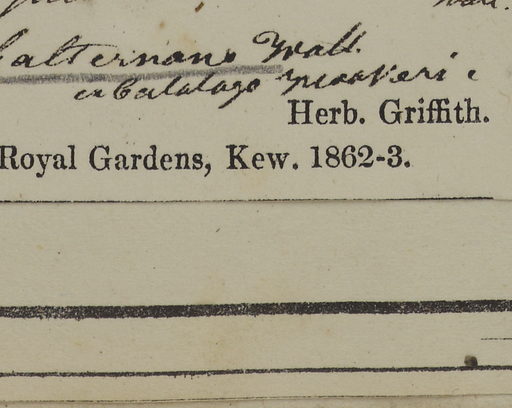 alternans Wall.
e Catalogo
Herb. Griffith.
Royal Gardens, Kew. 1862-3.